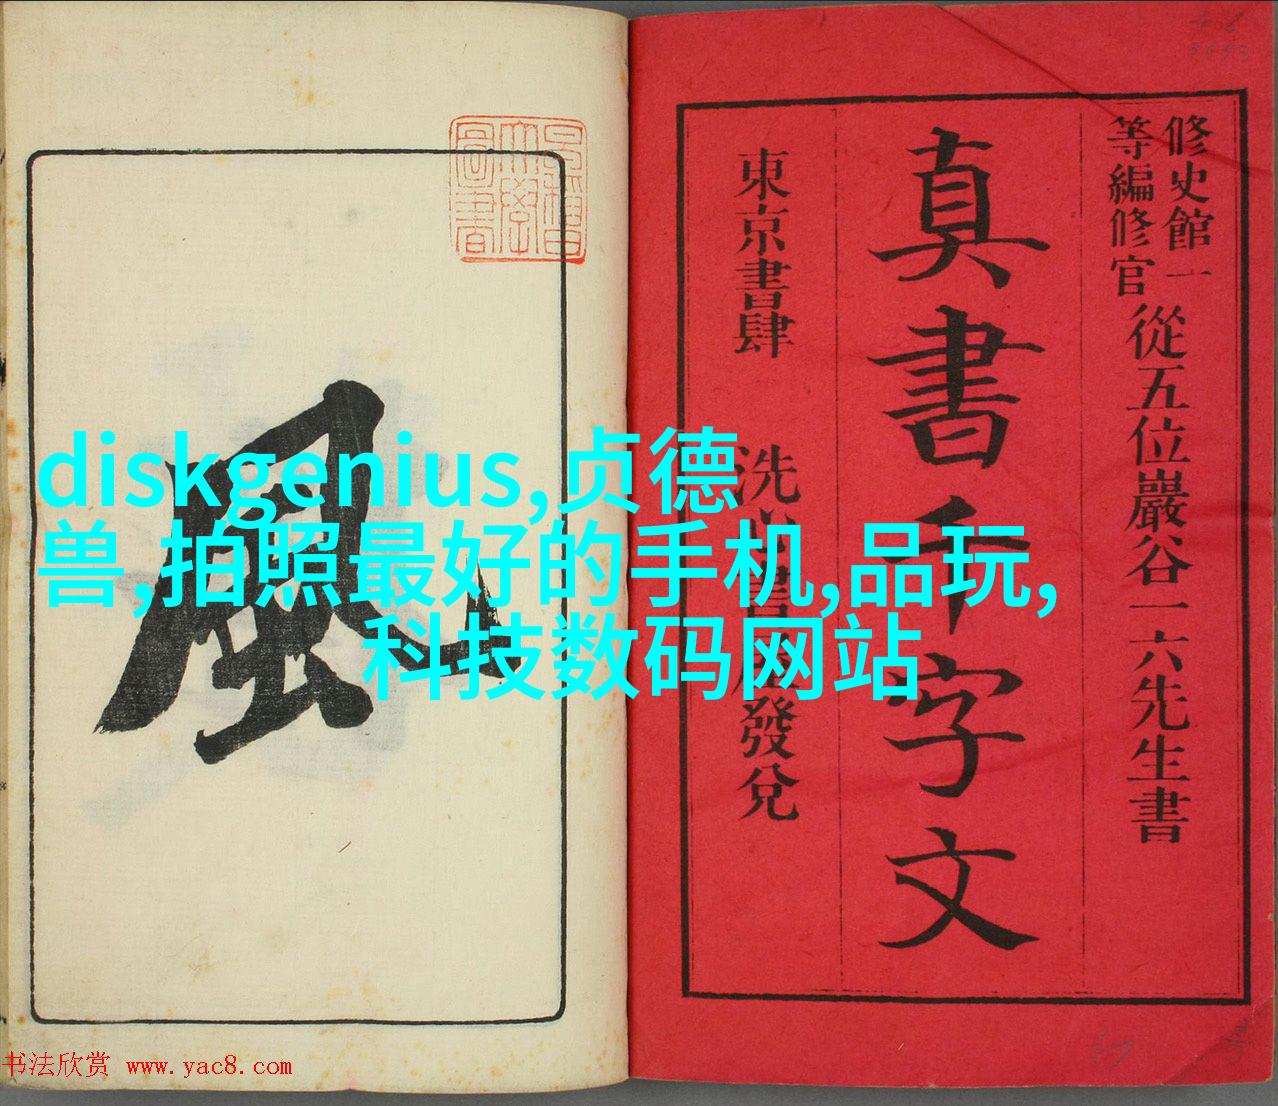 修史館一
等編修官
從五位巖谷一六先生書
真書千字文
東京書肆
發兌
風
diskgenius,贞德
兽,拍照最好的手机,品玩,
科技数码网站
书法欣赏 www.yac8.com